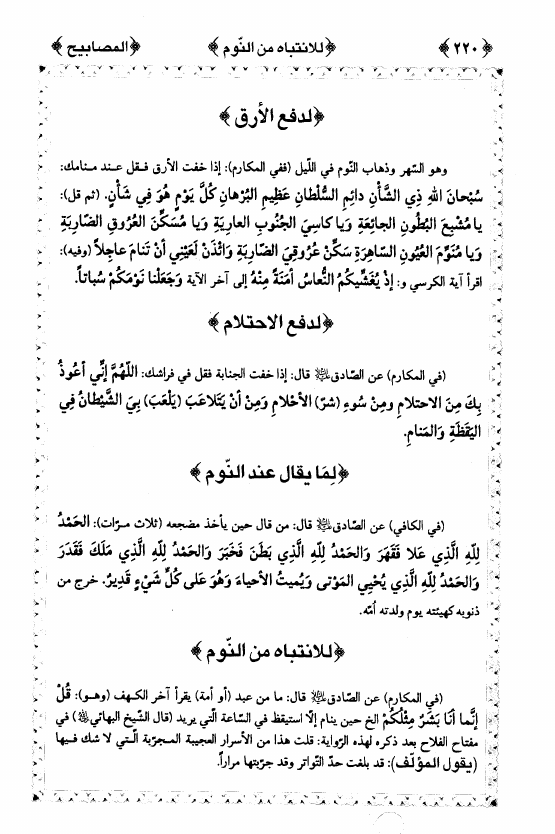 ﴿٢٢٠﴾ ﴿للانتباه من النّوم﴾ ﴿المصابيح﴾
﴿لدفع الأرق﴾
وهو السّهر وذهاب النّوم في اللّيل (ففي المكارم): إذا خفت الأرق فـقل عـند مـنامك:
سُبْحانَ اللهِ ذِي الشَّأْنِ دائِمِ السُّلْطانِ عَظِيمِ البُرْهانِ كُلَّ يَوْمٍ هُوَ فِي شَأْنٍ. (ثم قل):
يا مُشْبِعَ البُطُونِ الجائِعَةِ وَيا كاسِيَ الجُنُوبِ العارِيَةِ وَيا مُسَكِّنَ العُرُوقِ الضّارِبَةِ
وَيا مُنَوِّمَ العُيُونِ السّاهِرَةِ سَكِّنْ عُرُوقِيَ الضّارِبَةَ وَائْذَنْ لَعَيْنِي أَنْ تَنامَ عاجِلاً (وفيه):
اقرأ آية الكرسي و: إِذْ يُغَشِّيكُمُ النُّعاسُ أَمَنَةً مِنْهُ إلى آخر الآية وَجَعَلْنا نَوْمَكُمْ سُباتاً.
﴿لدفع الاحتلام﴾
(في المكارم) عن الصّادق قال: إذا خفت الجنابة فقل في فراشك: اللّهُمَّ إِنِّي أَعُوذُ
بِكَ مِنَ الاحتلامِ ومِنْ سُوءِ (شرِّ) الأحْلامِ وَمِنْ أَنْ يَتَلاعَبَ (يَلْعَبَ) بِيَ الشَّيْطانُ فِي
اليَقَظَةِ وَالمَنامِ.
﴿لِمَا يقال عند النّوم﴾
(في الكافي) عن الصّادق قال: من قال حين يأخذ مضجعه (ثلاث مـرّات): الحَمْدُ
لِلّهِ الَّذِي عَلا فَقَهَرَ وَالحَمْدُ لِلّهِ الَّذِي بَطَنَ فَخَبَرَ وَالحَمْدُ لِلّهِ الَّذِي مَلَكَ فَقَدَرَ
وَالحَمْدُ لِلّهِ الَّذِي يُحْيِي المَوْتى وَيُمِيتُ الأحياءَ وَهُوَ عَلى كُلِّ شَيْءٍ قَدِيرٌ. خرج من
ذنوبه كهيئته يوم ولدته أمّه.
﴿للانتباه من النّوم﴾
(في المكارم) عن الصّادق قال: ما من عبد (أو أمة) يقرأ آخر الكـهف (وهـو): قُلْ
إِنَّما أَنَا بَشَرٌ مِثْلُكُمْ الخ حين ينام إلّا استيقظ في السّاعة الّتي يريد (قال الشّيخ البهائي) في
مفتاح الفلاح بعد ذكره لهذه الرّواية: قلت هذا من الأسرار العجيبة المـجرّبة الّـتي لا شك فـيها
(يـقول المـؤلّف): قد بلغت حدّ التّواتر وقد جرّبتها مراراً.